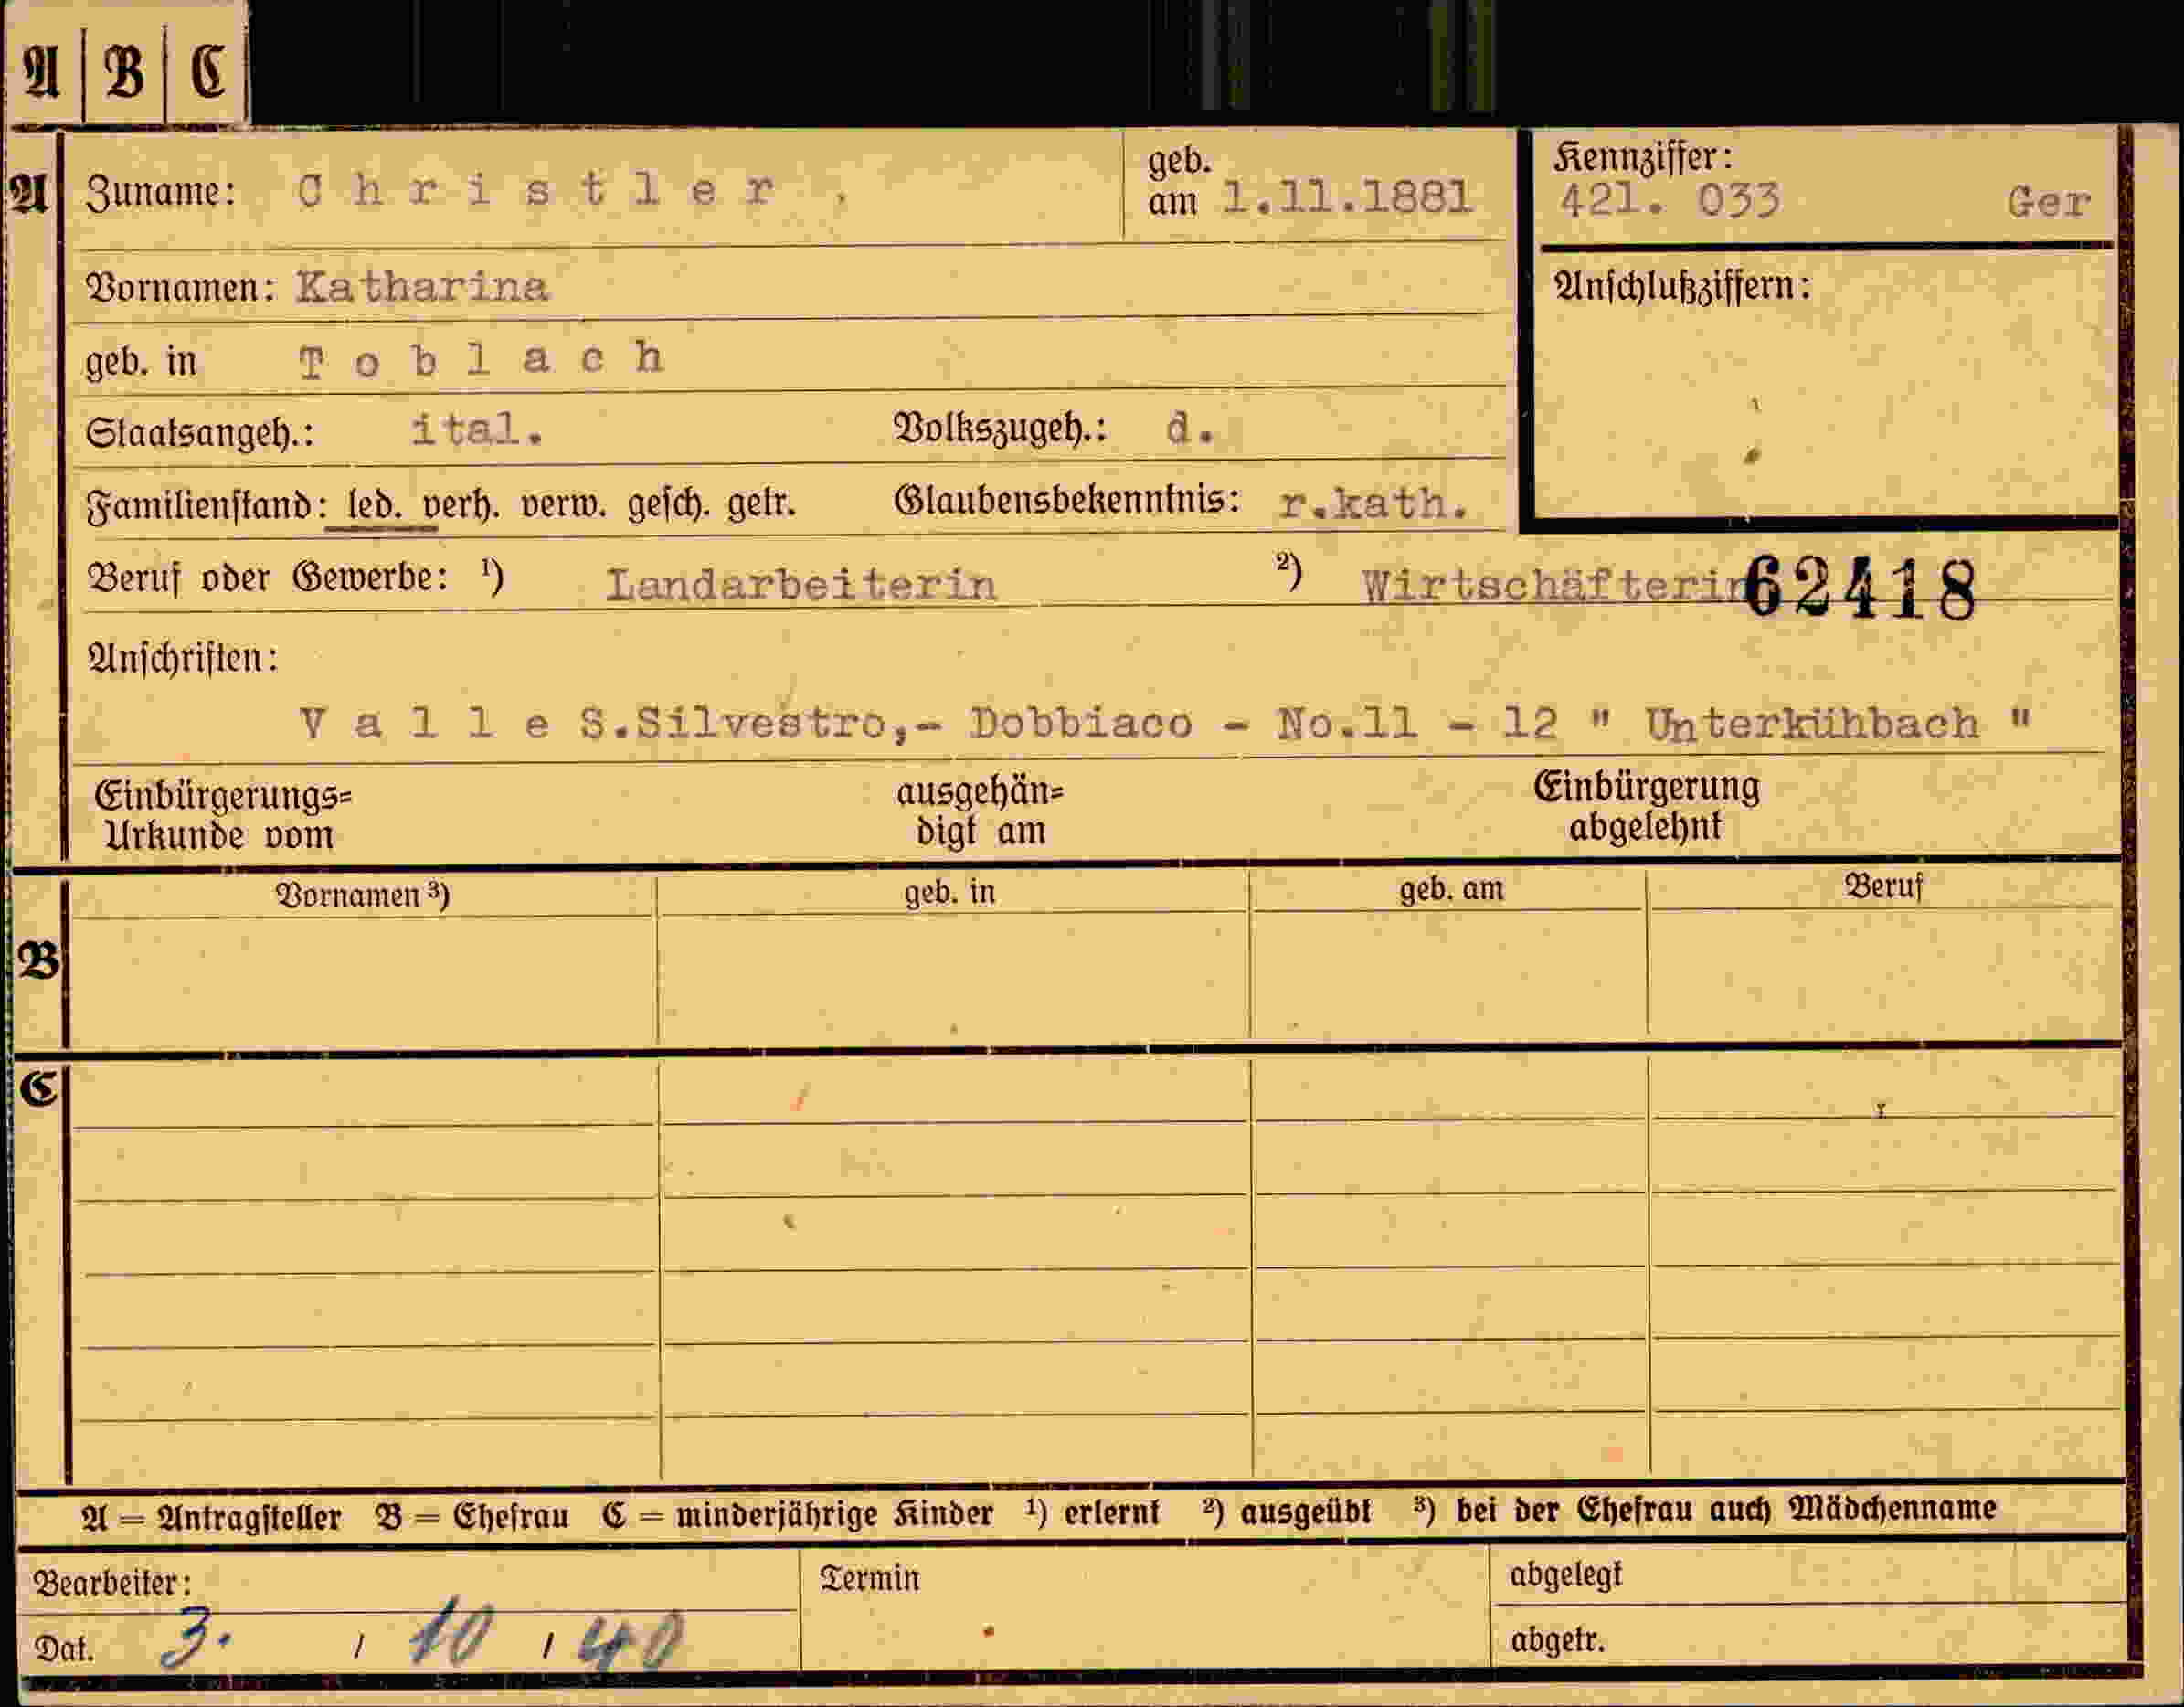 A | B | C
A Zuname: Christler, geb. am 1.11.1881
Kennziffer: 421. 033 Ger
Vornamen: Katharina
Anschlußziffern:
geb. in Toblach
Staatsangeh.: ital. Volkszugeh.: d.
Familienstand: led. verh. verw. gesch. getr. Glaubensbekenntnis: r.kath.
Beruf oder Gewerbe: ¹) Landarbeiterin ²) Wirtschäfterin 62418
Anschriften:
Valle S.Silvestro,- Dobbiaco - No.11 - 12 " Unterkühbach "
Einbürgerungs= Urkunde vom ausgehän= digt am Einbürgerung abgelehnt
B Vornamen ³) geb. in geb. am Beruf
C
A = Antragsteller B = Ehefrau C = minderjährige Kinder ¹) erlernt ²) ausgeübt ³) bei der Ehefrau auch Mädchenname
Bearbeiter: Termin abgelegt
Dat. 3. / 10 / 40 abgetr.